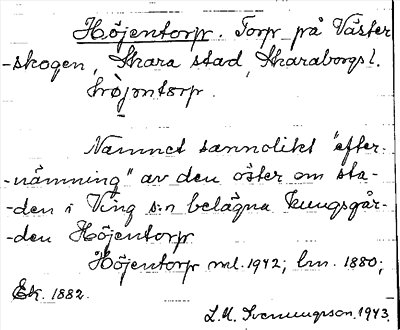 Höjentorp. Torp på Väster
-skogen, Skara stad, Skaraborgs l.
hö̀jəntorp.
Namnet sannolikt "efter-
-nämning" av den öster om sta-
-den i Ving s:n belägna kungsgår-
-den Höjentorp
Höjentorp ml. 1942; lm. 1880;
Ek. 1882.
L.M. Svenungsson. 1943.